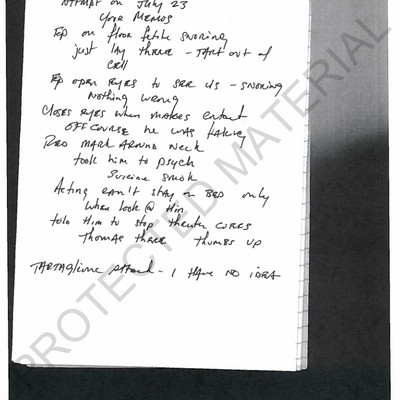 Attempt on July 23
your MEMOS
Ep on floor fetile snoring
just lay there - TART out of
cell
Ep open eyes to see us - snoring
nothing wrong
closes eyes when makes contact
OFF COURSE he was faking
RED MARK AROUND neck
took him to psych
Suicide smok
Acting can't stay on BED only
when look @ him
told Him to stop theater
Thomas there thumbs up
TARTAglione Attack - I HAVE NO IDEA
PROTECTED MATERIAL